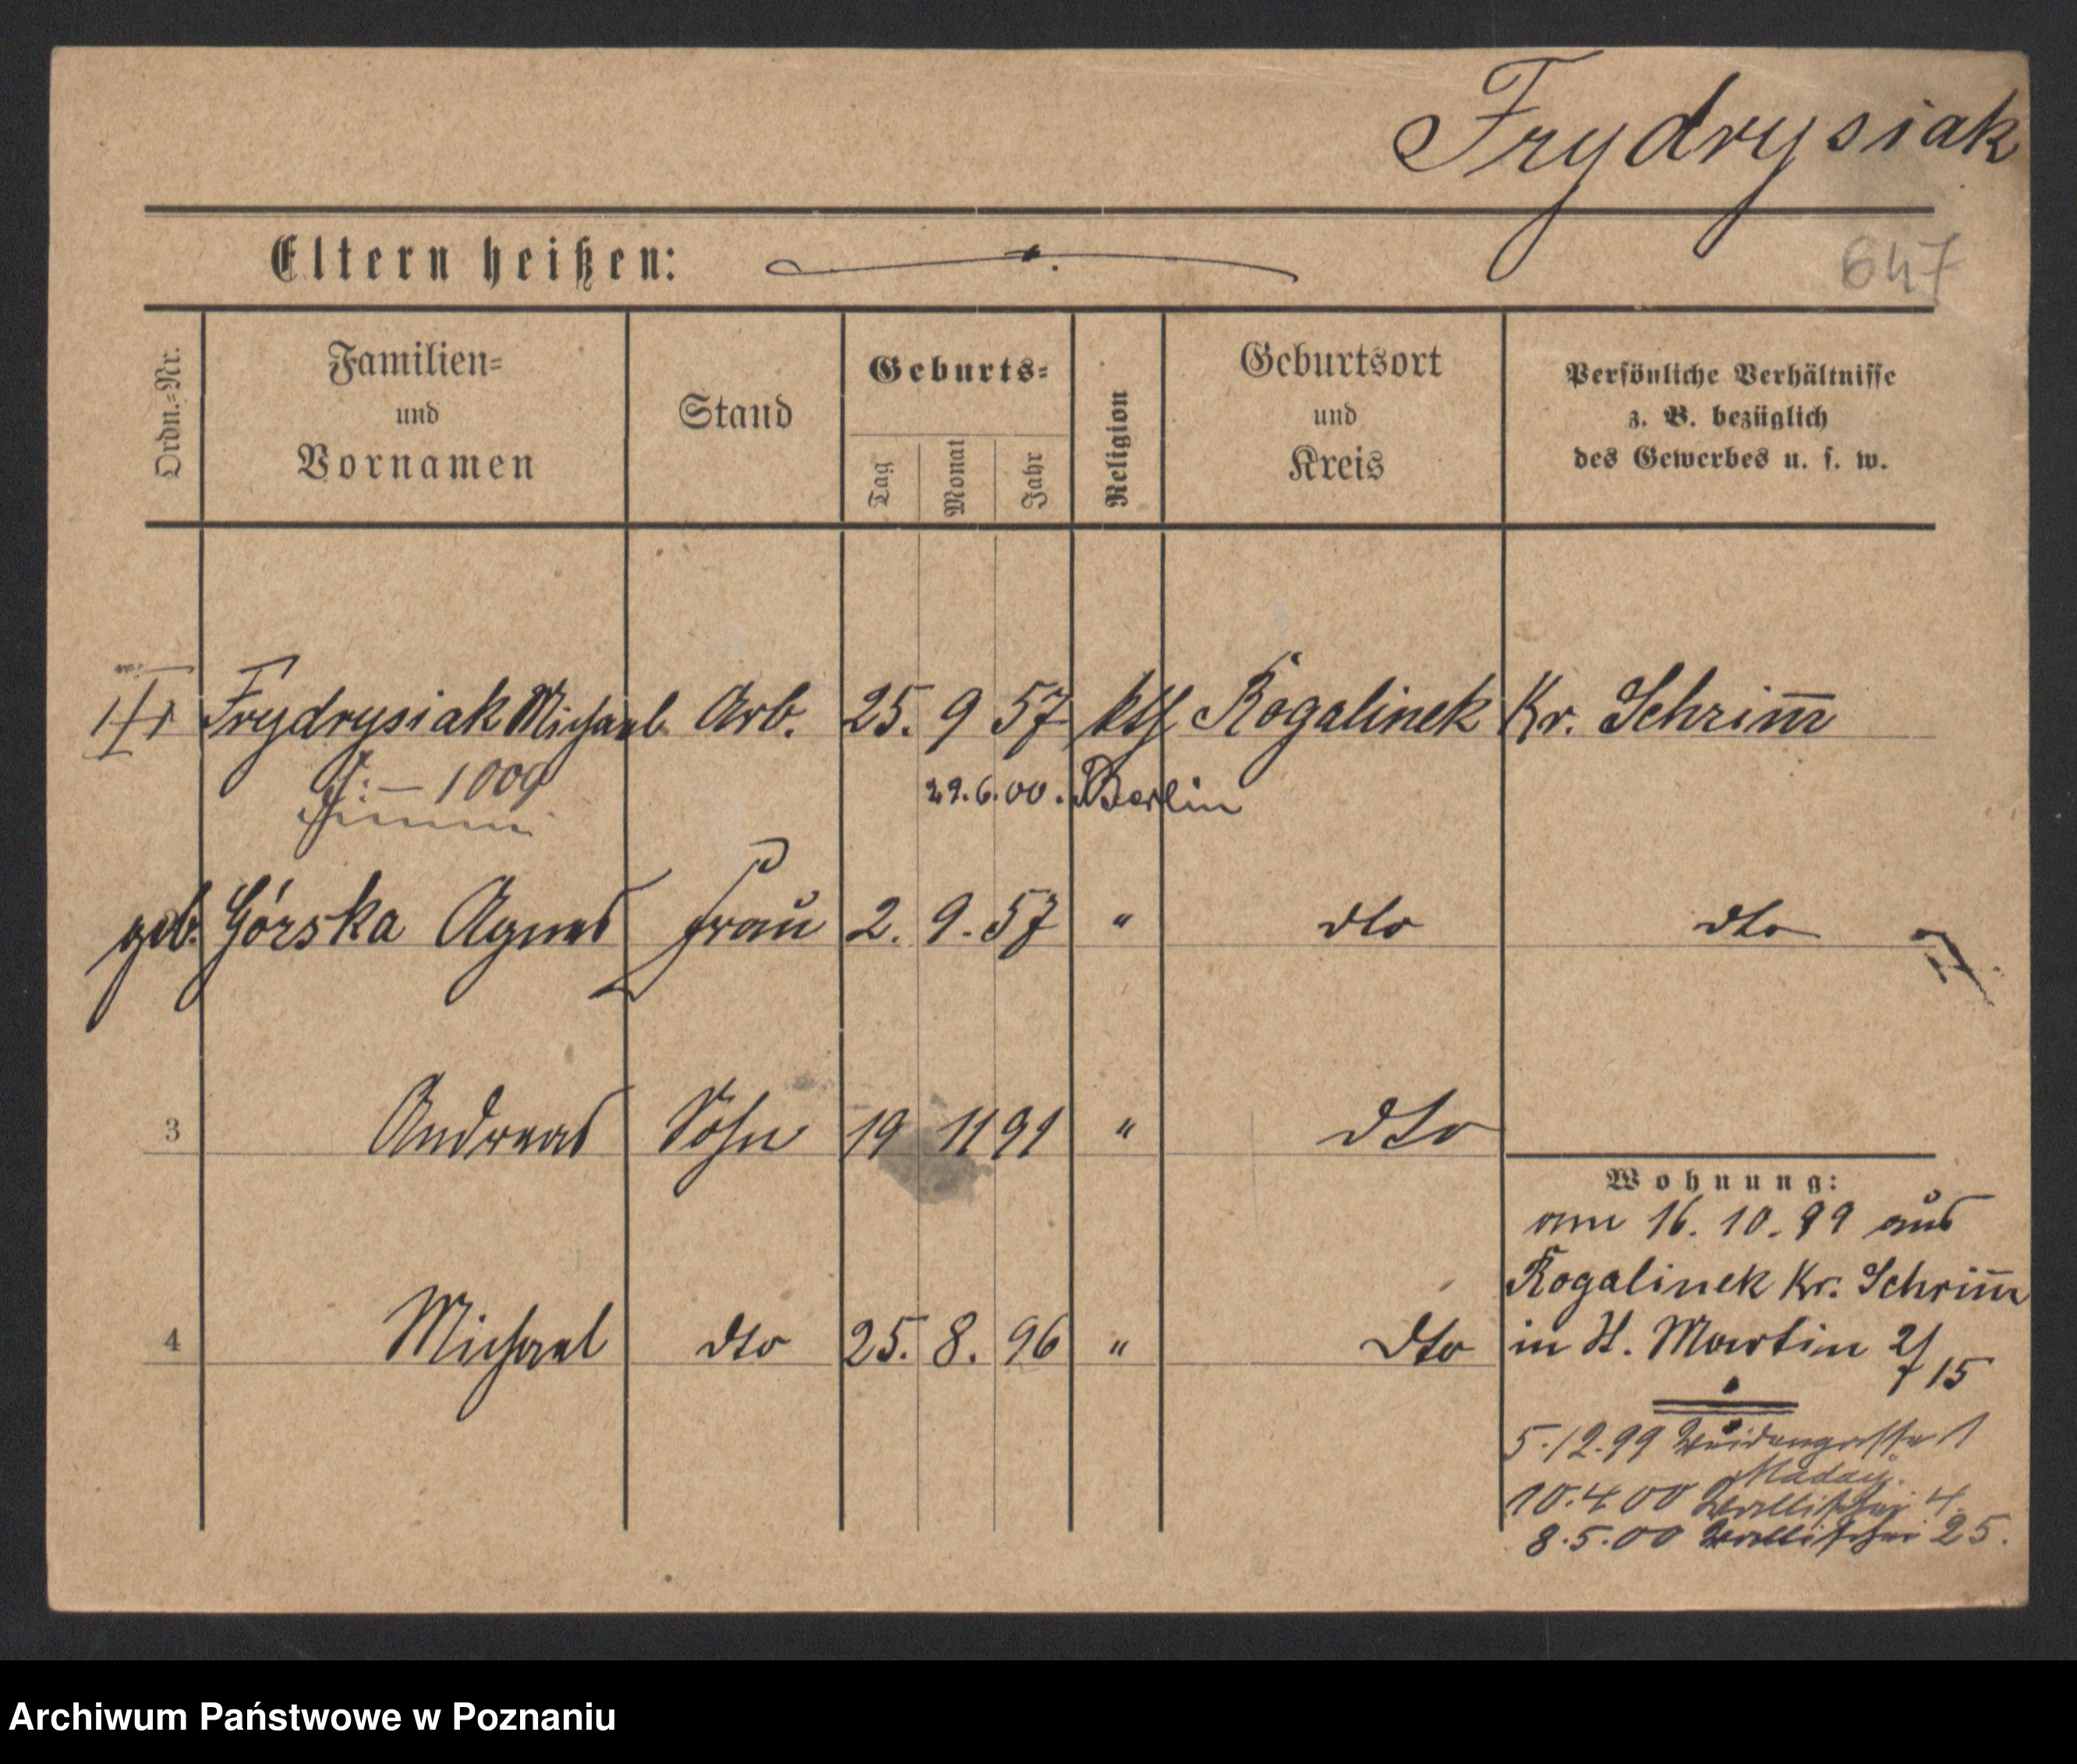 Frydrysiak
Eltern heißen:
647
Ordn.-Nr.
Familien- und Vornamen
Stand
Geburts-
Tag
Monat
Jahr
Religion
Geburtsort und Kreis
Persönliche Verhältnisse
z. B. bezüglich
des Gewerbes u. s. w.
Frydrysiak Michael Arb. 25. 9 57 kth Rogalinek Kr. Schrim̅
1009
29.6.00. Berlin
geb. Górska Agnes Frau 2. 9. 57 " dto dto
3 Andreas Sohn 19 11 91 " dto
Wohnung:
am 16. 10. 99 aus
Rogalinek Kr. Schrim̅
4 Michael dto 25. 8. 96 " dto
in St. Martin 2/
15
5.12.99 Weidengasse 1
Maday.
10.4.00 Wallischei 4.
8.5.00 Wallischei 25.
Archiwum Państwowe w Poznaniu